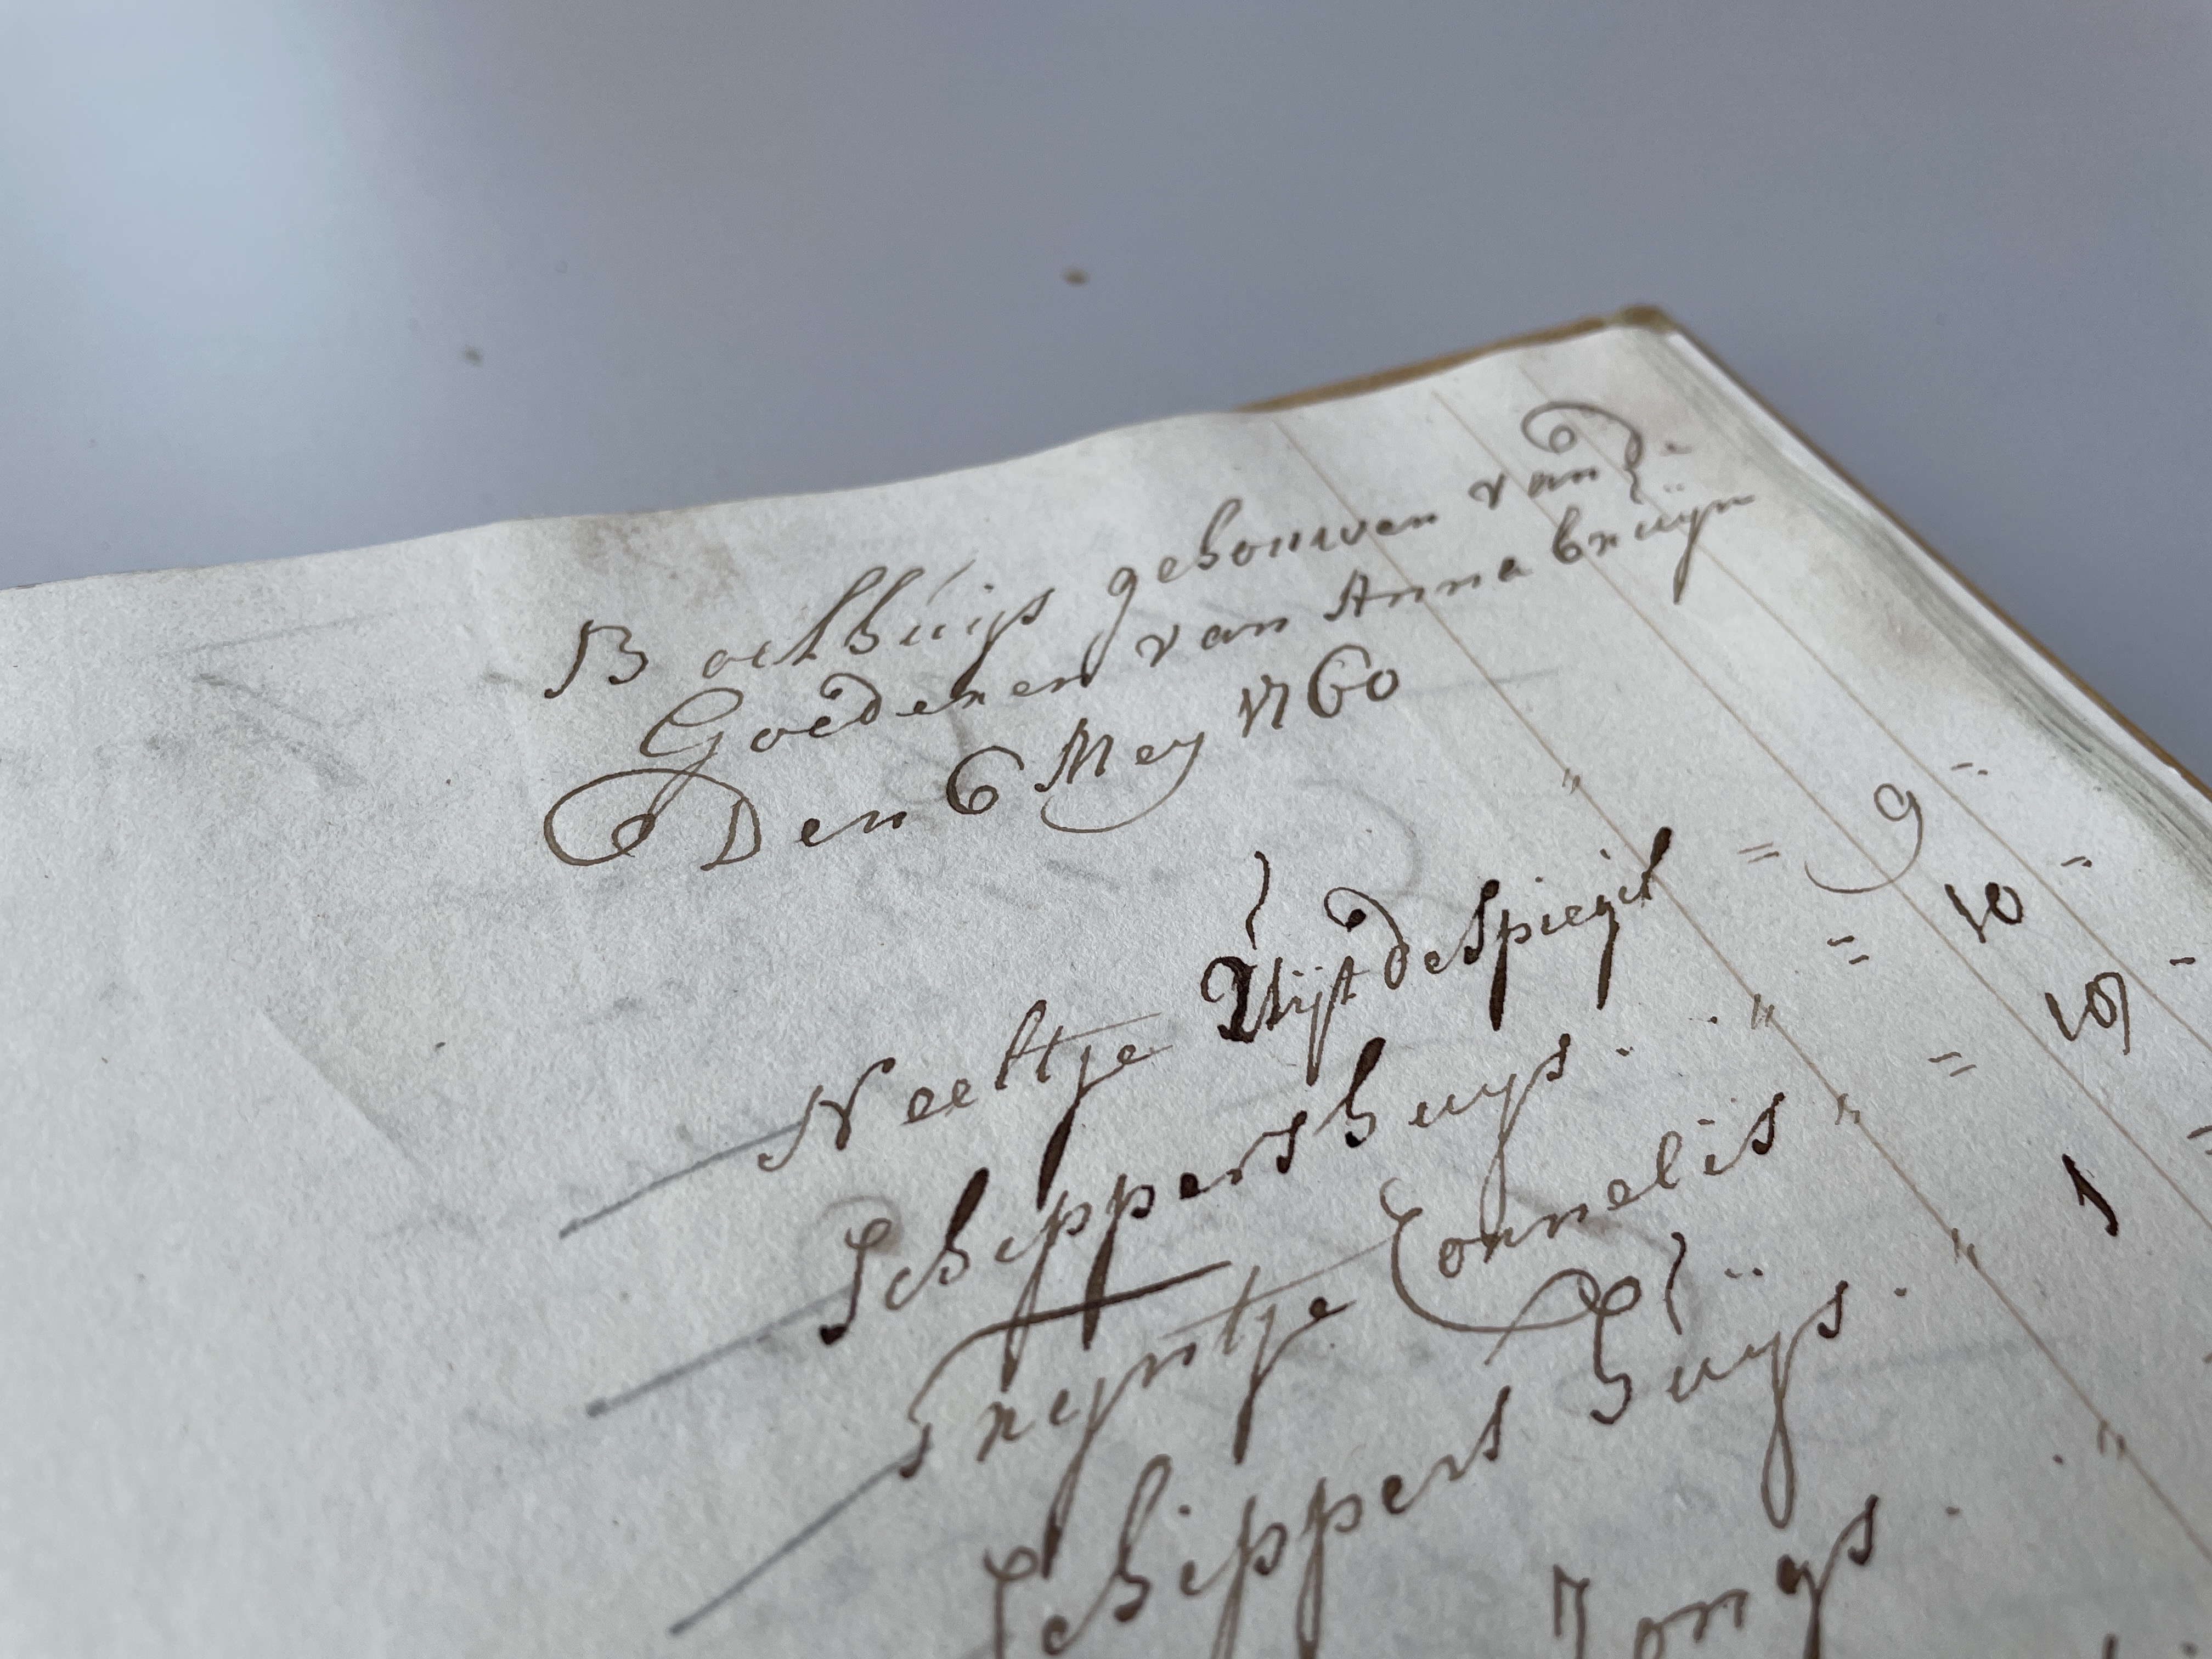 Boelhuijs gehouwen van d
Goederen van Anna Cruijn
Den 6 Mey 1760
Neeltje Uijt de Spiegel " = 9 "
Schippershuys . " = 10 "
Tryntje Cornelis " = 10 "
Schippers huijs . " 1
Jongs .